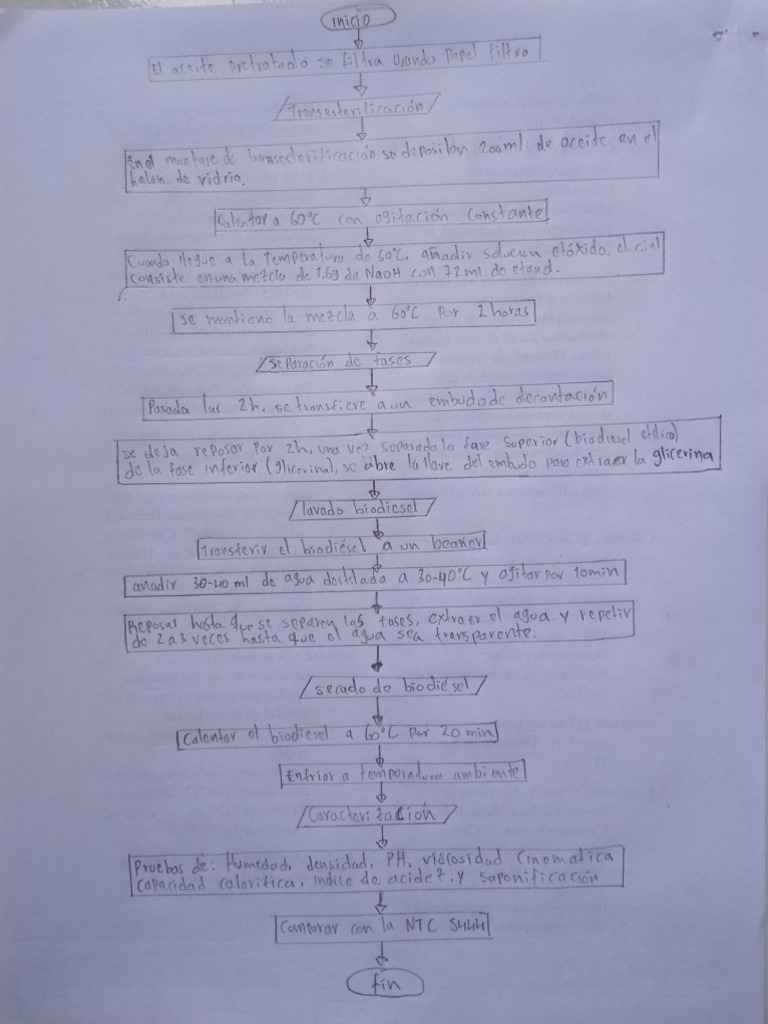 inicio
El aceite pretratado se filtra usando papel filtro
Transesterificación
En el montaje de transesterificación se depositan 200ml de aceite en el
balon de vidrio.
Calentar a 60°C con agitación constante
Cuando llegue a la temperatura de 60°C. añadir solucion etóxido, el cual
consiste en una mezcla de 1,6g de NaOH con 72ml de etanol.
se mantiene la mezcla a 60°C Por 2 horas
separación de fases
Pasada las 2h. se transfiere a un embudo de decantación
se deja reposar por 2h, una vez separada la fase superior (biodiesel etilico)
de la fase inferior (glicerina), se abre la llave del embudo para extraer la glicerina
lavado biodiesel
Transferir el biodiésel a un beaker
añadir 30-40 ml de agua destilada a 30-40°C y agitar por 10min
Reposar hasta que se separen las fases, extraer el agua y repetir
de 2 a 3 veces hasta que el agua sea transparente.
secado de biodiésel
Calentar el biodiesel a 60°C por 20 min
Enfriar a temperatura ambiente
Caracterización
Pruebas de: Humedad, densidad, PH, viscosidad cinematica
capacidad calorifica, indice de acidez. y saponificación
Comparar con la NTC 5444
fin